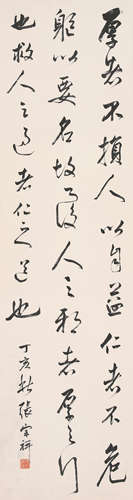 厚者不損人以自益仁者不危
軀以要名故覆人之邪者厚之行
也救人之過者仁之道也
丁亥秋張宗祥